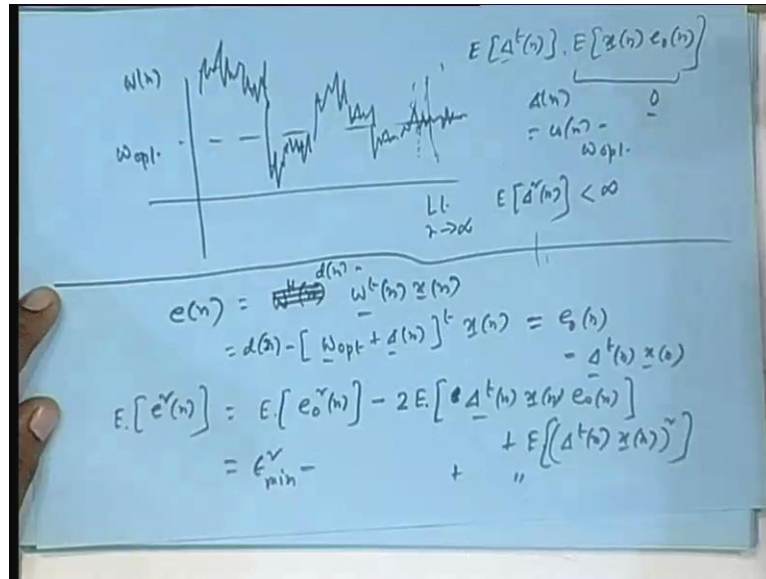 E[Δᵗ(n)]. E[x(n) e₀(n)]
w(n)
Δ(n) 0
= w(n) -
w opt.
w opt.
E[Δ²(n)] < ∞
Lt.
n→∞
e(n) = d(n) - wᵗ(n) x(n)
= d(n) - [w opt + Δ(n)]ᵗ x(n) = e₀(n)
- Δᵗ(n) x(n)
E.[e²(n)] = E.[e₀²(n)] - 2E.[Δᵗ(n) x(n) e₀(n)]
+ E[(Δᵗ(n) x(n))²]
= ϵ²min - + "